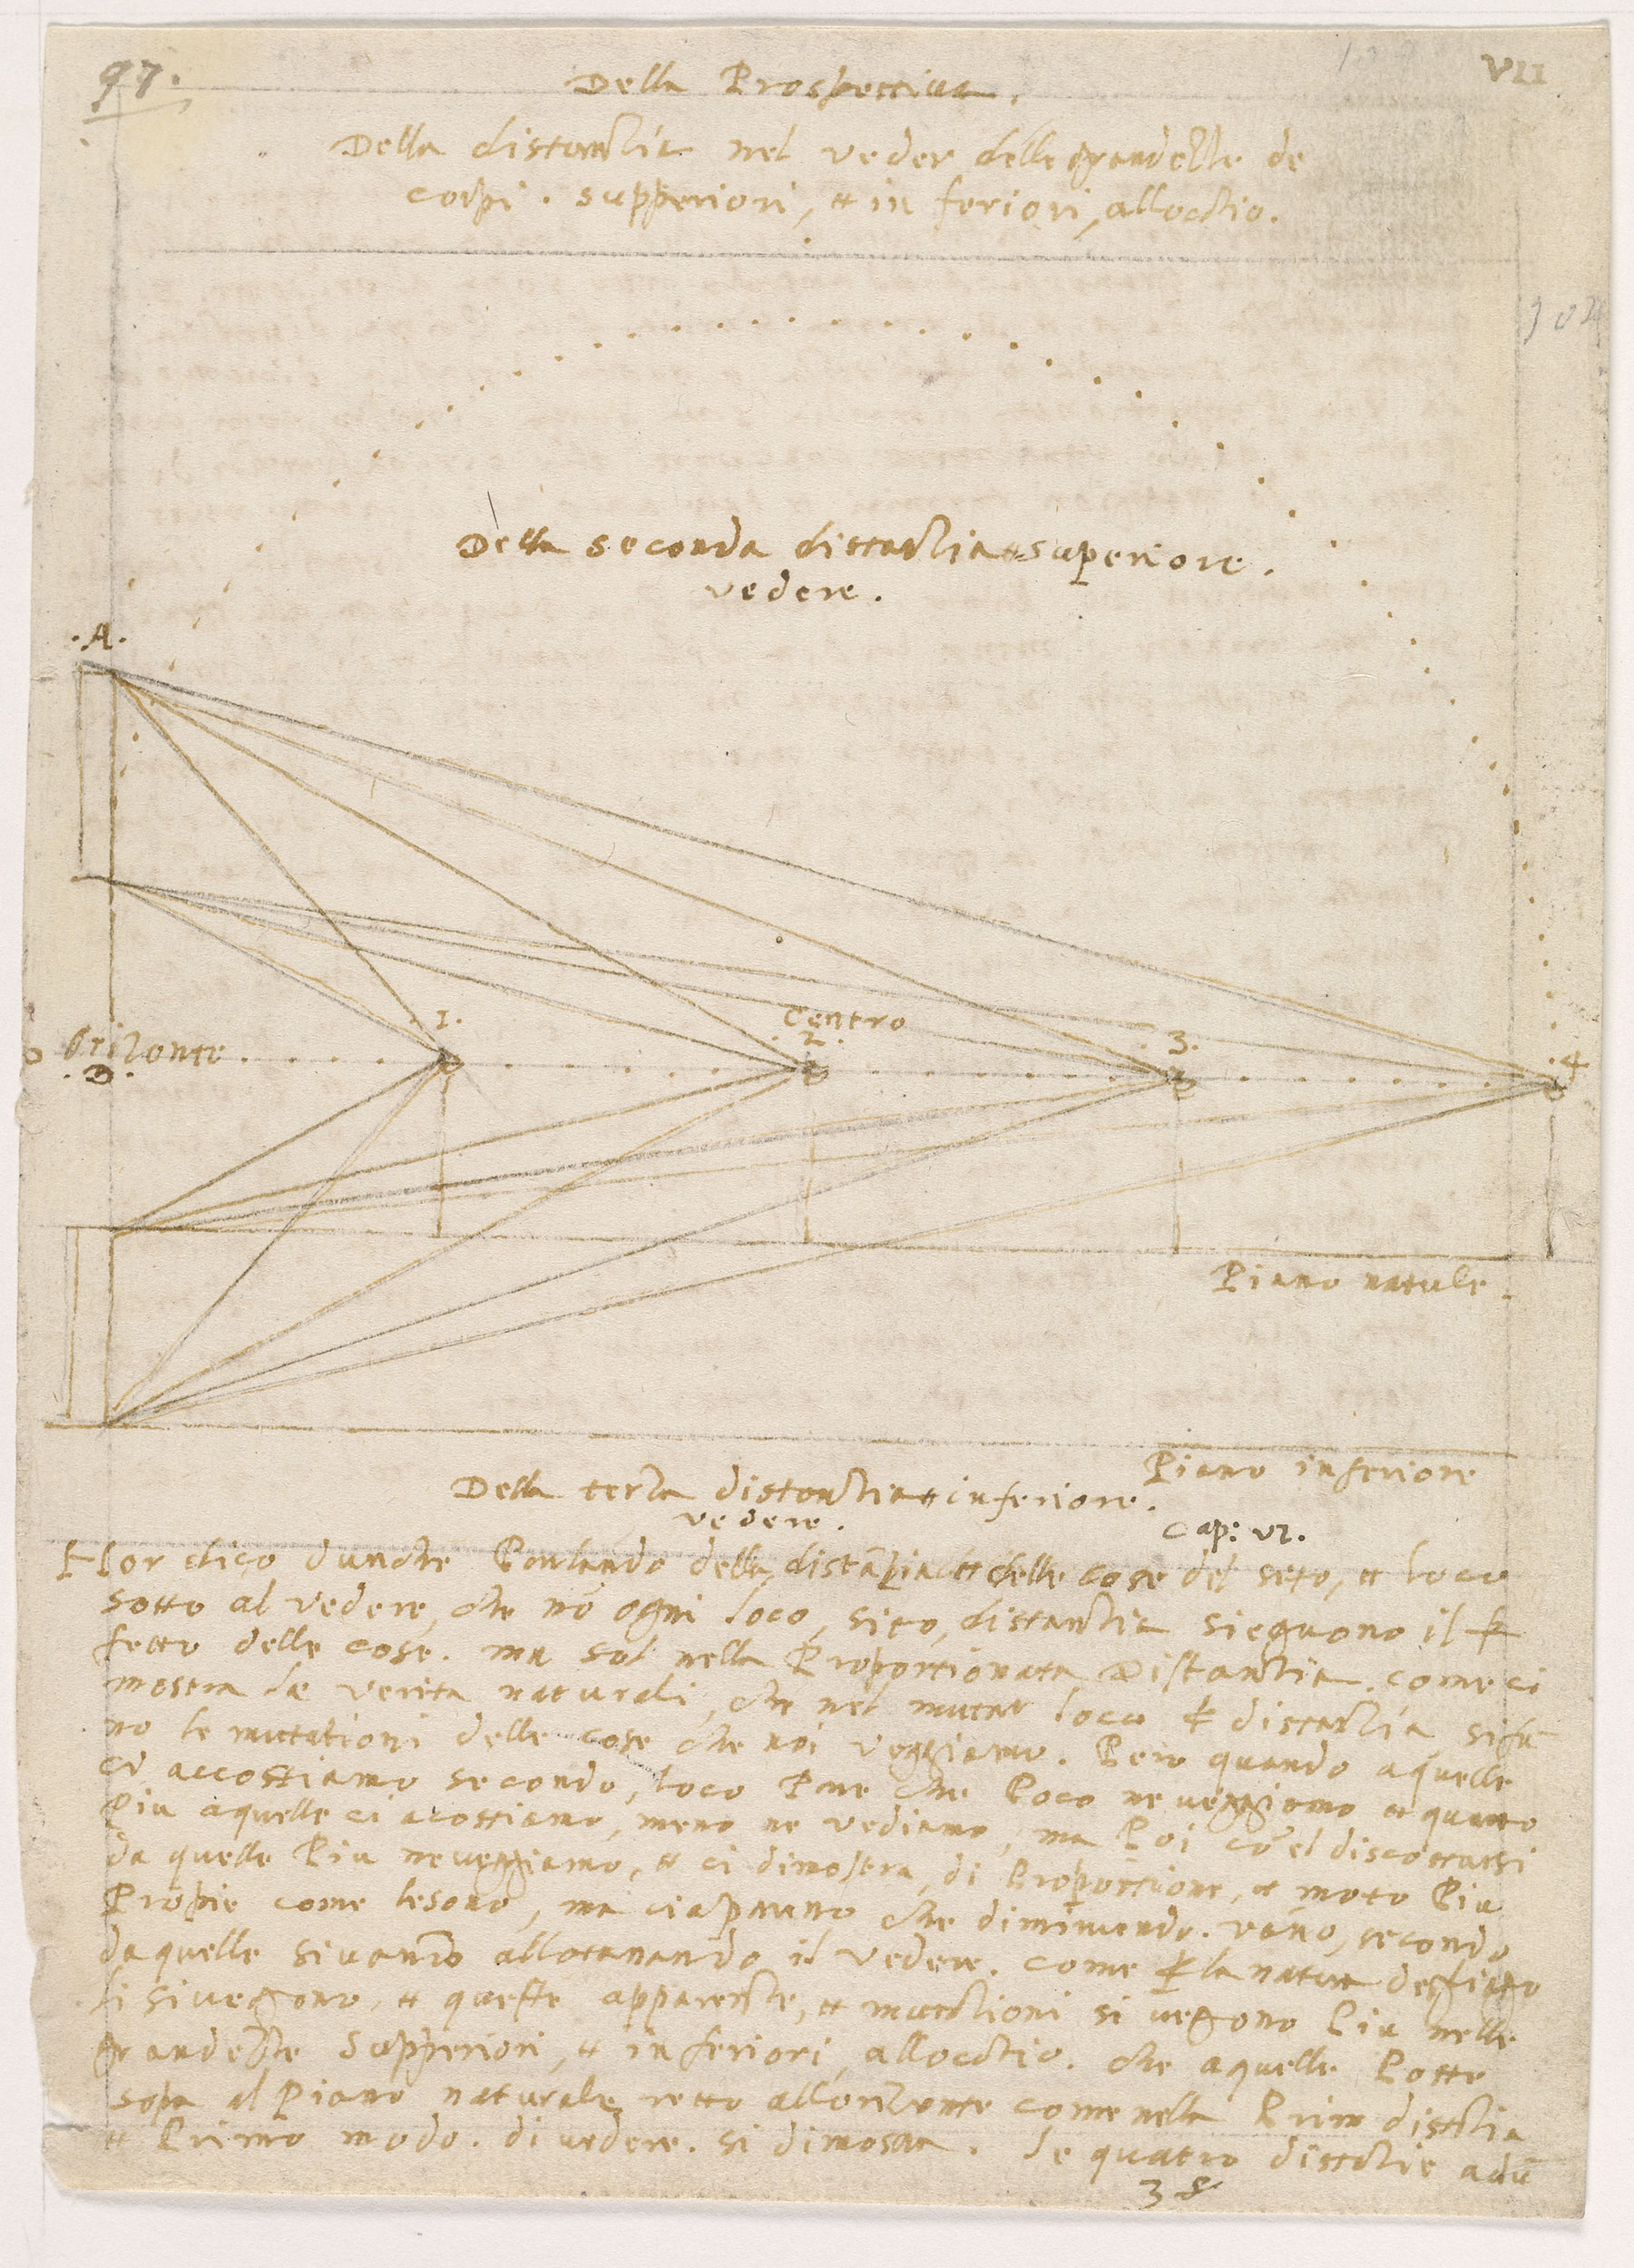 97.
Della Prospettiua.
VII
Della distantia nel veder delle grandezze de
corpi. supperiori, et in feriori, all'ochio.
Della seconda distantia et superiore.
vedere.
.A.
.1.
Centro
.2.
.3.
.4
Orizonte
.D.
Piano natule.
Piano inferiore
Della terza distantia et inferiore.
vedere.
Cap: VI.
Hor dico dunche Parlando della distãtia et delle cose del seto, et loco
sotto al vedere, che nõ ogni loco, sito, distantia sieguono il
fetto delle cose. ma sol nella Proportionata Distantia. come ci
mostra le verita naturali, che nel mutar loco et distantia si fan
no le mutationi delle cose che noi veggiamo. Pero quando aquelle
ci accostiamo secondo, loco Pare che Poco ne veggiamo et quanto
Piu aquelle ci acostiamo, meno ne vediamo, ma Poi cõ el discostarsi
da quelle Piu ne veggiamo, et ci dimostra, di Proportione, et moto Piu
Propie come le sono, ma ci apaiano che diminuendo. vano, secondo
da quelle si vanno allotanando il vedere. come la natura
li si vegono, et queste apparentie, et mutationi si vegono Piu nelle
grandezze Supperiori, et inferiori, all'ochio. che aquelle Poste
sopa al Piano naturale retto all'orizonte come nella Prim distãtia
et Primo modo. di vedere. si dimostra. le quatro distãtie adũ
38